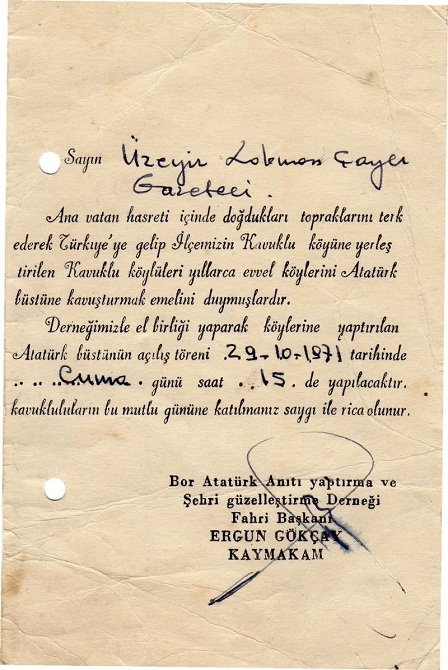 Sayın Üzeyir Lokman Çaycı
Gazeteci.
Ana vatan hasreti içinde doğdukları topraklarını terk
ederek Türkiye'ye gelip İlçemizin Kavuklu köyüne yerleş
tirilen Kavuklu köylüleri yıllarca evvel köylerini Atatürk
büstüne kavuşturmak emelini duymuşlardır.
Derneğimizle el birliği yaparak köylerine yaptırılan
Atatürk büstünün açılış töreni .29-10-1971 tarihinde
.. .. Cuma . günü saat ..15 . de yapılacaktır.
kavukluluların bu mutlu gününe katılmanız saygı ile rica olunur.
Bor Atatürk Anıtı yaptırma ve
Şehri güzelleştirme Derneği
Fahri Başkanı
ERGUN GÖKÇAY
KAYMAKAM